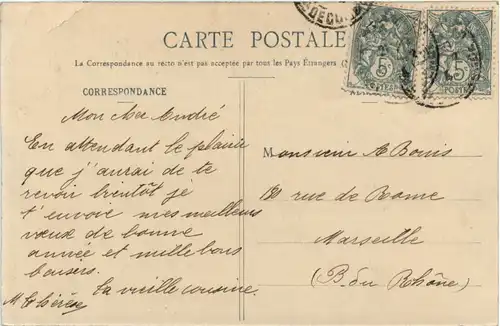 CARTE POSTALE
La Correspondance au recto n'est pas acceptée par tout les Pays Étrangers
CORRESPONDANCE
Mon cher André
En attendant le plaisir
que j'aurai de te
revoir bientôt je
t'envoie mes meilleurs
vœux de bonne
année et mille bons
baisers.
Ta vieille cousine.
M. Thérèse
5
POSTES
5
POSTES
Monsieur A Bouis
rue de Rome
Marseille
(B. du Rhône)